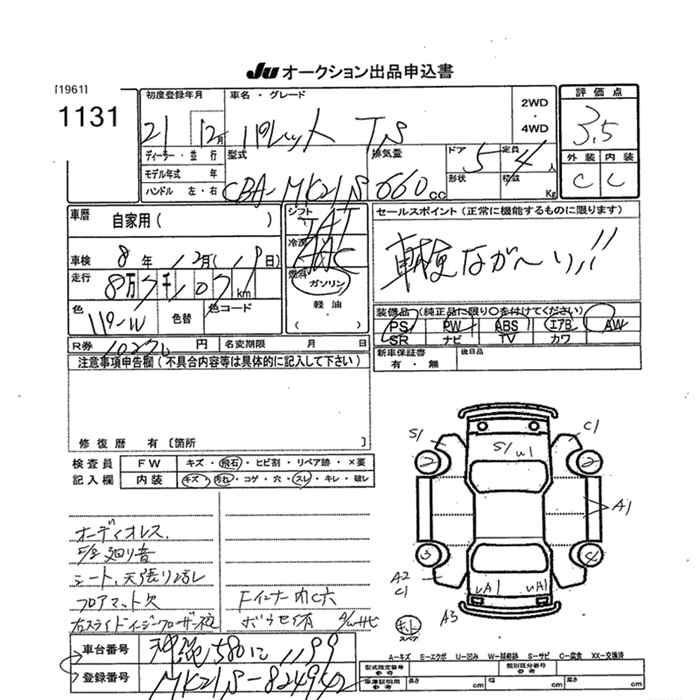 Ju オークション出品申込書
[1961]
1131
初度登録年月
21 12月
車名・グレード
パレット TS
2WD
・
4WD
評価点
3.5
外装 内装
C C
ディーラー・並行
モデル年式 年
ハンドル 左・右
型式
CBA-MK21S
排気量
660cc
ドア 5
形状
定員 4人
積載 Kg
車歴 自家用( )
車検 8年 12月( 19日)
走行 8万 7千 107km
色 パールW
色替
色コード
シフト
冷房 AAC
燃料 ガソリン
軽油・
( )
セールスポイント(正常に機能するものに限ります)
車検なが〜い!!
装備品(純正品に限り○を付けてください)
PS PW ABS エアB AW
SR ナビ TV カワ
R券 10270円
名変期限 月 日
新車保証書
有・無
後日品
注意事項申告欄(不具合内容等は具体的に記入して下さい)
修復歴 有[箇所 ]
検査員
記入欄
FW キズ・飛石・ヒビ割・リペア跡・×要
内装 キズ・汚れ・コゲ・穴・スレ・キレ・破レ
オーディオレス
シート、天張り
フロアマット欠
Fインナー
S1 C1
S1 U1
2 2
A1
3
A2
C1
UA1 UA1
A3
スペア
A-キズ E-エクボ U-凹み W-補修跡 S-サビ C-腐食 XX-交換済
車台番号
登録番号
沖縄580に1199
MK21S-824942
型式指定番号
参考
類別区分番号
参考
車庫証明用
参考
長さ cm
幅 cm
高さ cm